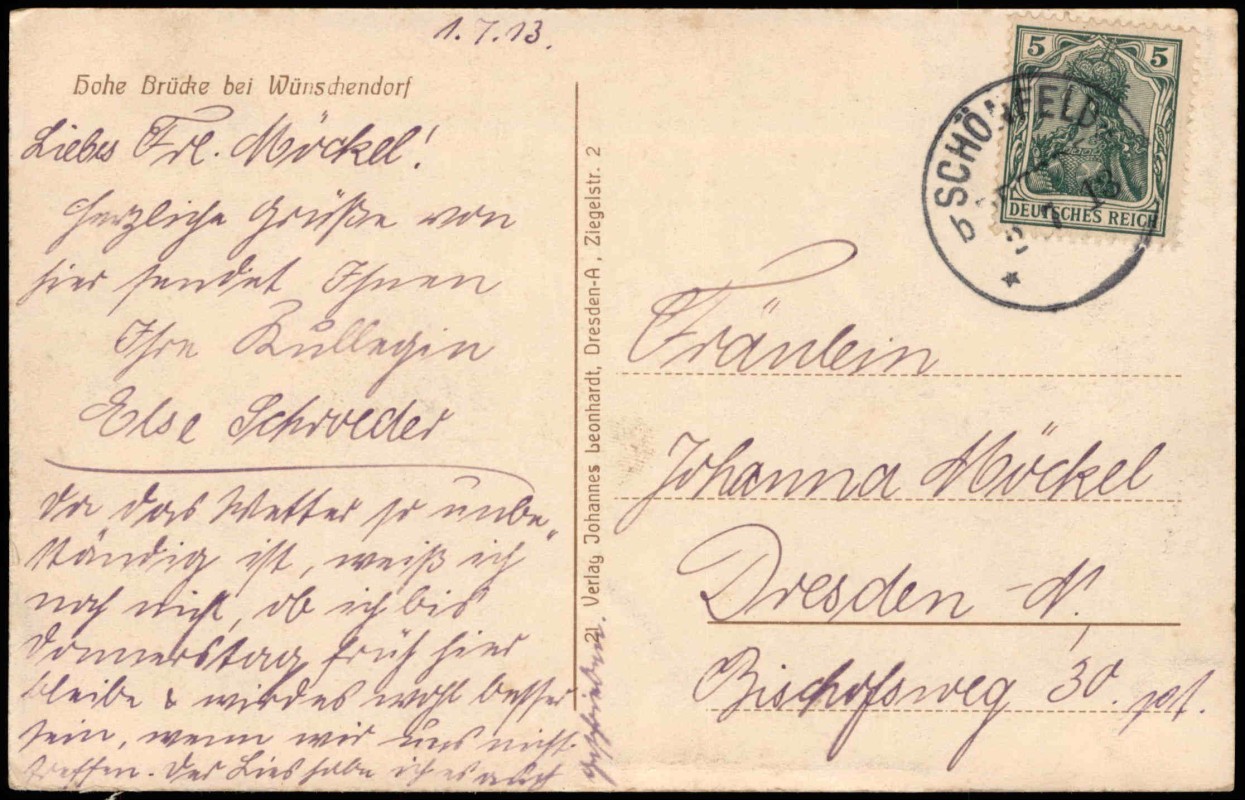 1.7.13.
Hohe Brücke bei Wünschendorf
Liebes Frl. Möckel!
Herzliche Grüße von
hier sendet Ihnen
Ihre Kollegin
Else Schroeder
Da das Wetter so unbe-
ständig ist, weiß ich
noch nicht, ob ich bis
Donnerstag früh hier
bleibe & wird es wohl besser
sein, wenn wir uns nicht
treffen. Der Lies habe ich es auch
geschrieben.
21 Verlag Johannes Leonhardt, Dresden-A, Ziegelstr. 2
5 5
DEUTSCHES REICH
SCHÖNFELD
b
2 7 13
Fräulein
Johanna Möckel
Dresden-N.
Bischofsweg 30 pt.